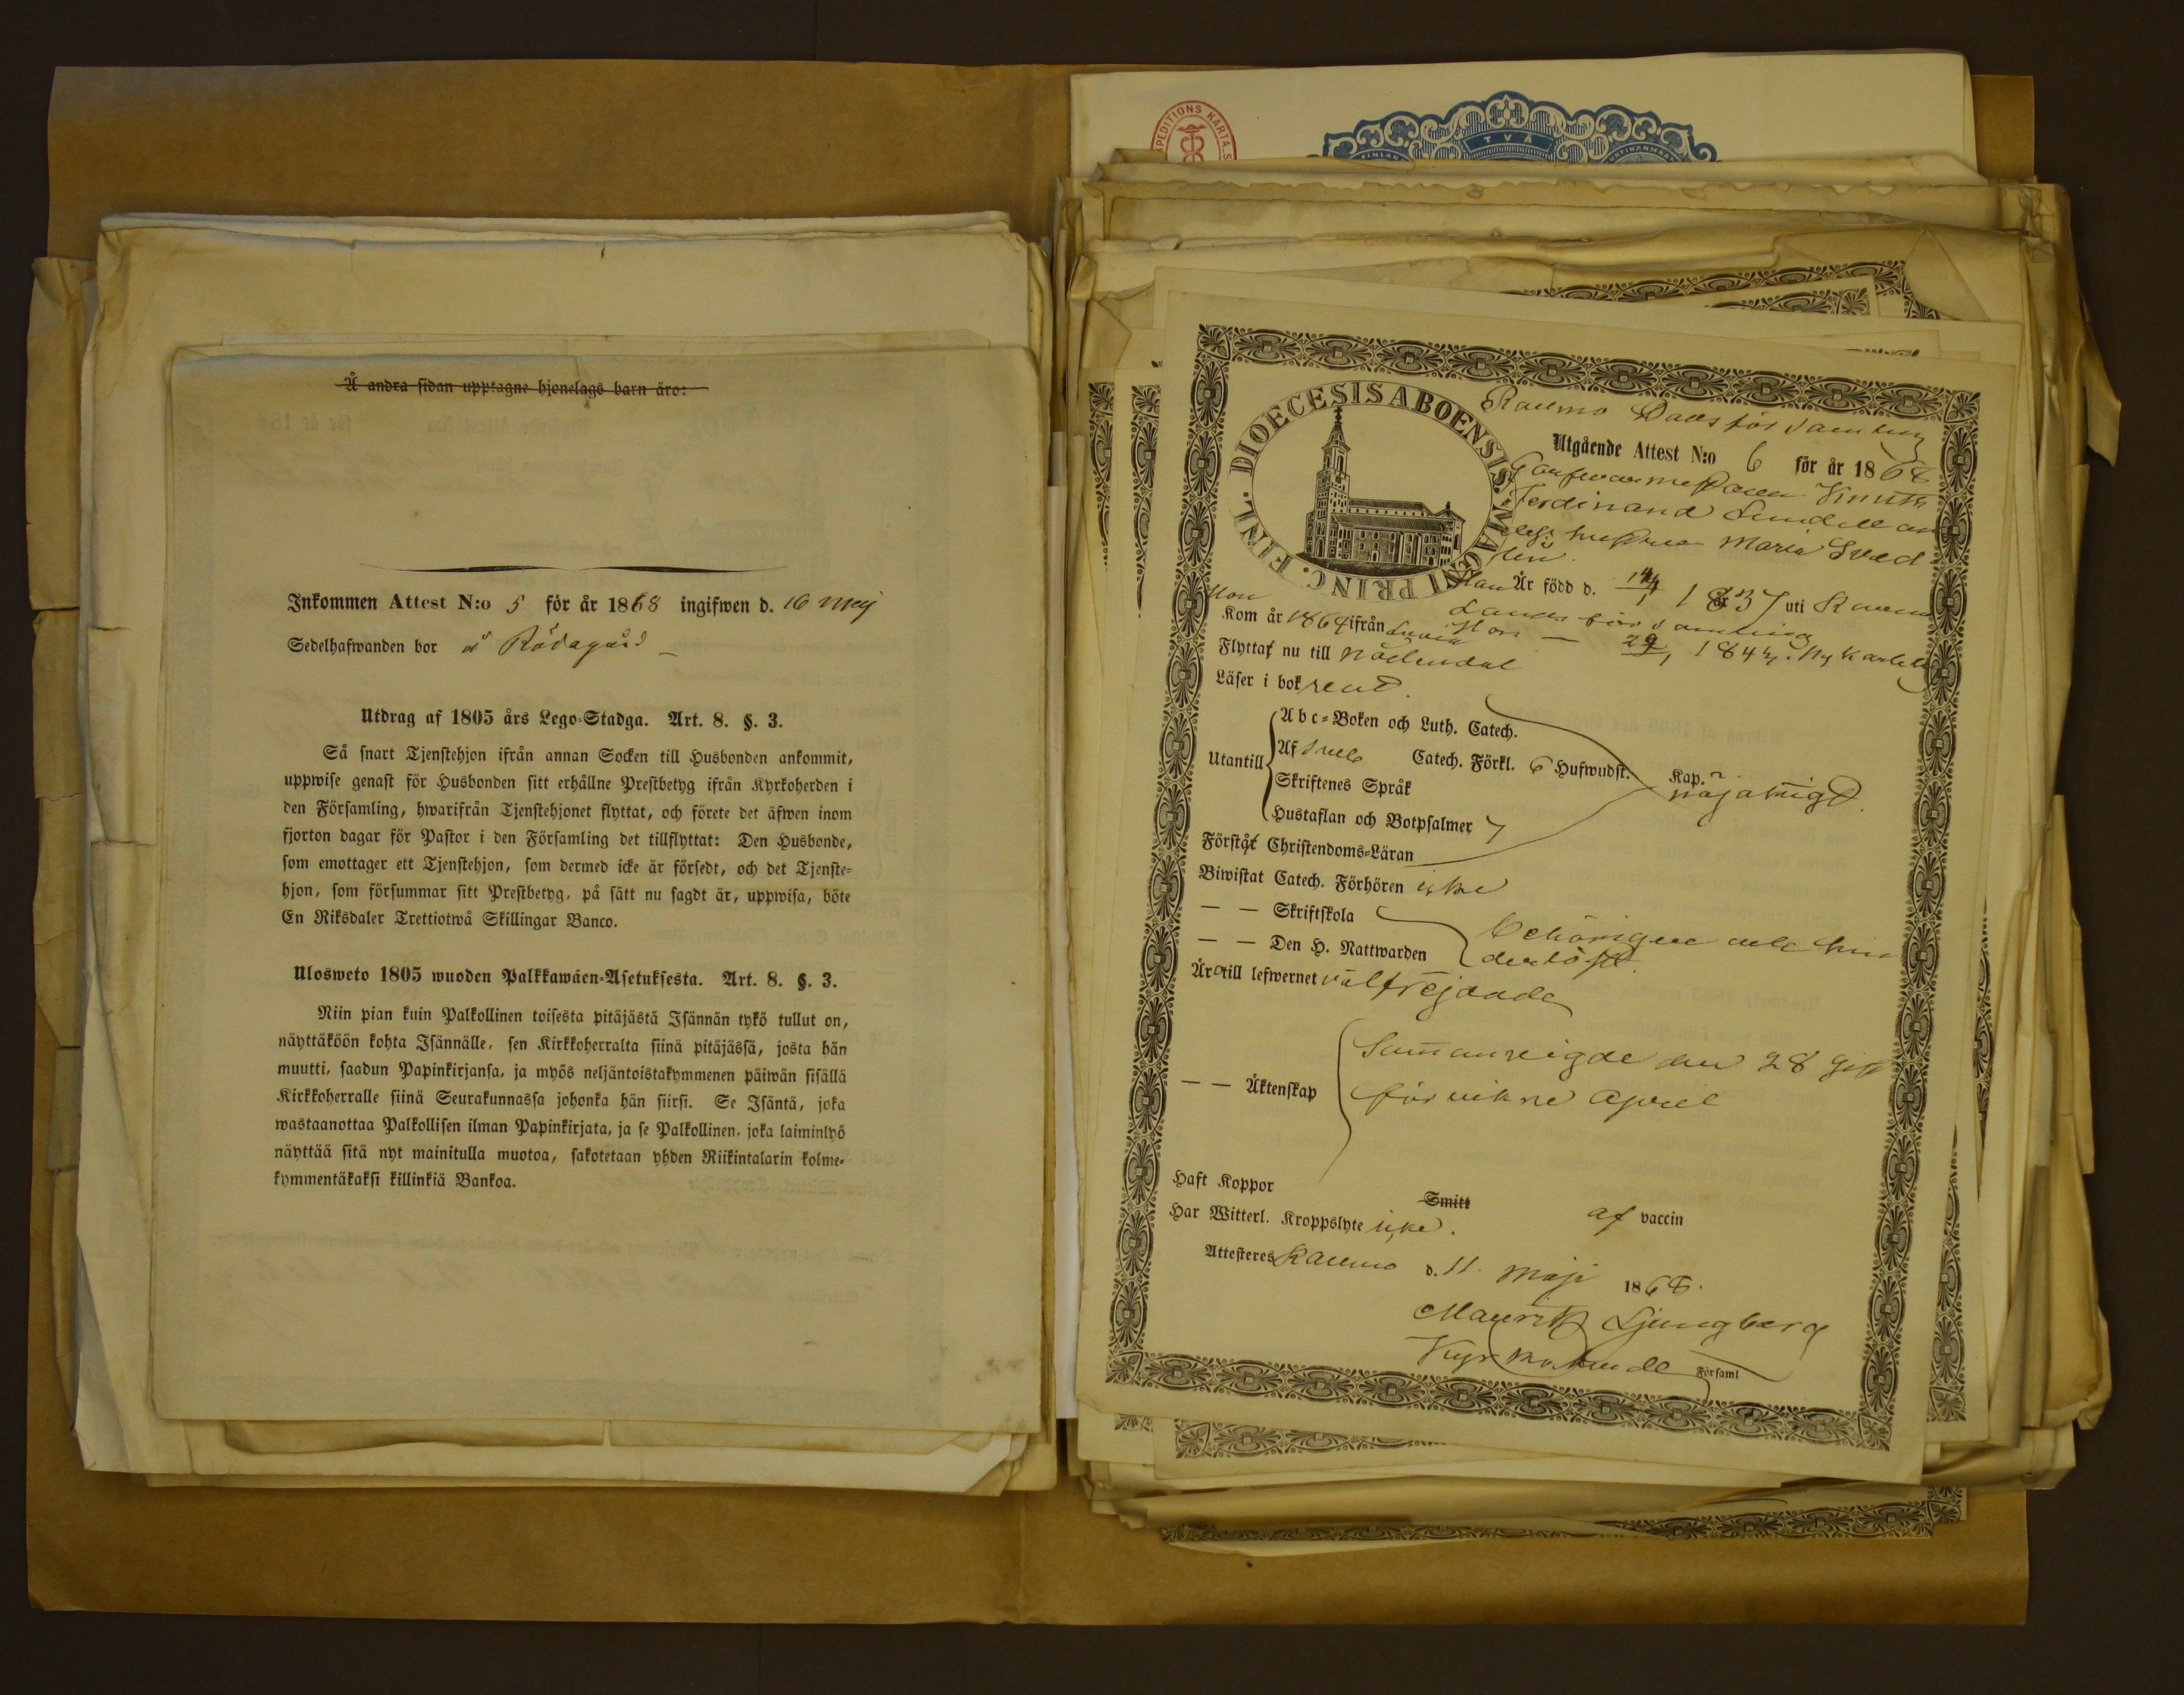 Å andra sidan upptagne hjonelags barn äro:
Inkommen Attest N:o 5 för år 1868 ingifwen d. 16 Maj
Sedelhafwanden bor å Rödagård
Utdrag af 1805 års Lego-Stadga. Art. 8. §. 3.
Så snart Tjenstehjon ifrån annan Socken till Husbonden ankommit,
uppwise genast för Husbonden sitt erhållne Prestbetyg ifrån Kyrkoherden i
den Församling, hwarifrån Tjenstehjonet flyttat, och förete det äfwen inom
fjorton dagar för Pastor i den Församling det tillflyttat: Den Husbonde,
som emottager ett Tjenstehjon, som dermed icke är försedt, och det Tjenste-
hjon, som försummar sitt Prestbetyg, på sätt nu sagdt är, uppwisa, böte
En Riksdaler Trettiotwå Skillingar Banco.
Ulosweto 1805 wuoden Palkkawäen-Asetuksesta. Art. 8. §. 3.
Niin pian kuin Palkollinen toisesta pitäjästä Isännän tykö tullut on,
näyttäköön kohta Isännälle, sen Kirkkoherralta siinä pitäjässä, josta hän
muutti, saadun Papinkirjansa, ja myös neljäntoistakymmenen päiwän sisällä
Kirkkoherralle siinä Seurakunnassa johonka hän siirsi. Se Isäntä, joka
wastaanottaa Palkollisen ilman Papinkirjata, ja se Palkollinen, joka laiminlyö
näyttää sitä nyt mainitulla muotoa, sakotetaan yhden Riikintalarin kolme-
kymmentäkaksi killinkiä Bankoa.
EXPEDITIONS KARTA.S
TVÅ
FINLAN
DIOECESIS ABOENSIS. MAGNI PRINC. FINL.
Raumo Stads församling
Utgående Attest N:o 6 för år 1868
Garfvaremästaren Knut
Ferdinand Lundell och
hustru Maria Sved
lin
Han Är född d. 14/1 1837 uti Raumo
Hon
Kom år 1864 ifrån Luvia
Lands församling
Hon — 29/1 1844 i Ny Karleby
Flytta nu till Nådendal
Läser i bok rent.
Utantill
Abc-Boken och Luth. Catech.
Af Sveb Catech. Förkl. 6 Hufwudst. Kap. 7
Skriftenes Språk
nöjaktigt.
Hustaflan och Botpsalmer 7
Förstår Christendoms-Läran
Biwistat Catech. Förhören icke
— — Skriftskola
— — Den H. Nattwarden
behörigen
Är till lefwernet välfrejdade
— — Äktenskap
Sammanvigde den 28 sist
förvikne April
Haft Koppor Smitt af vaccin
Har Witterl. Kroppslyte icke.
Attesteres Raumo d. 11 Maji 1868.
Mauritz Ljungberg
Kyrkoherde
Församl